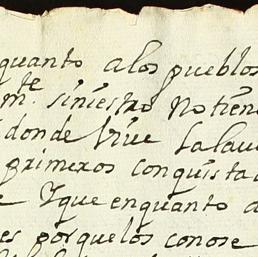 quanto a los pueblos
mte. siniestro no tiene
donde vive
primeros conquista
e y que en quanto a
es porque los conose